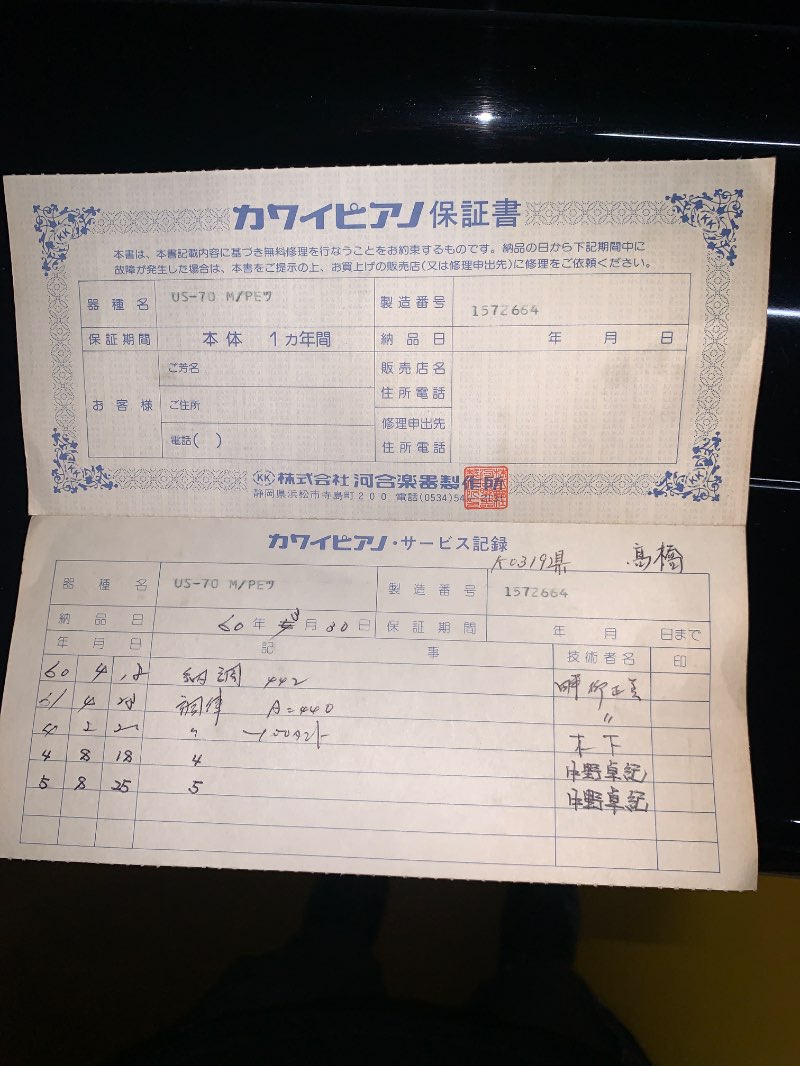 カワイピアノ 保証書
本書は、本書記載内容に基づき無料修理を行なうことをお約束するものです。納品の日から下記期間中に
故障が発生した場合は、本書をご提示の上、お買上げの販売店(又は修理申出先)に修理をご依頼ください。
器種名 US-70 M/PEツ 製造番号 1572664
保証期間 本体 1ヵ年間 納品日 年 月 日
お客様 ご芳名 販売店名
住所電話
ご住所
修理申出先
電話( ) 住所電話
KK 株式会社 河合楽器製作所
静岡県浜松市寺島町200 電話(0534)54
カワイピアノ・サービス記録
K0319県 高橋
器種名 US-70 M/PEツ 製造番号 1572664
納品日 60年 3月 30日 保証期間 年 月 日まで
年 月 日 記事 技術者名 印
60 4 18 納調 442
61 4 28 調律 A=440 〃
4 2 〃 木下
4 8 18 4 中野卓記
5 8 25 5 中野卓記